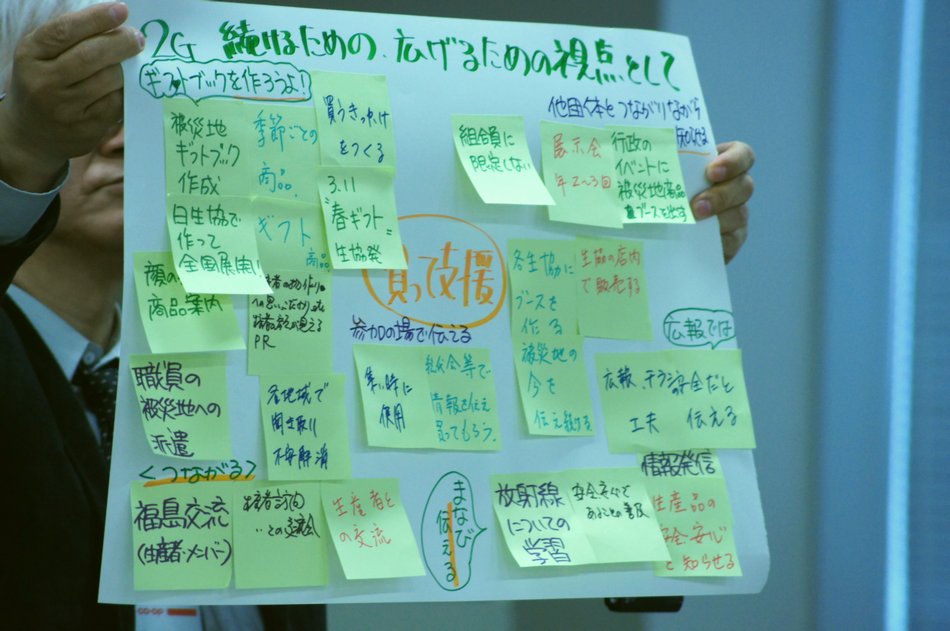 2G 続けるための、広げるための視点として
ギフトブックを作ろうよ!
被災地
ギフトブック
作成
季節ごとの
商品
買うきっかけ
をつくる
日生協で
作って
全国展開!
ギフト
商品
3.11
"春ギフト"
生協発
顔の
商品案内
PR
職員の
被災地への
派遣
各地域で
聞き取り
不安解消
<つながる>
福島交流
(生産者・メンバー)
生産者と
の交流
他団体とつながりながら
知らせる
組合員に
限定しない
展示会
年2~3回
行政の
イベントに
被災地商品
ブースを出す
買って支援
各生協に
ブースを
作る
被災地の
今を
伝え続ける
生協の店内
で販売する
参加の場で伝える
集い時に
使用
総代会等で
情報を伝え
買ってもらう。
広報では
広報、チラシで安全だと
工夫 伝える
まなび
伝える
放射線
についての
学習
情報発信
生産品の
安全・安心
と知らせる
CO・OP